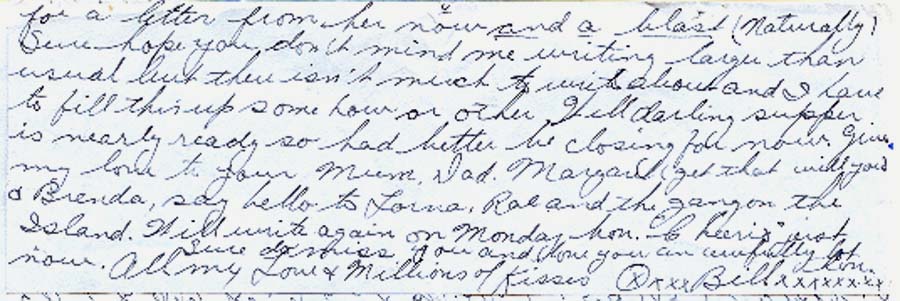 for a letter from her now and a blast (Naturally)
Sure hope you don't mind me writing larger than
usual but there isn't much to write about and I have
to fill this up some how or other. Well darling supper
is nearly ready so had better be closing for now. Give
my love to your Mum, Dad. Margaret (get that will you)
& Brenda, say hello to Lorna, Rae and the gang on the
Island. Will write again on Monday hon. "Cheerio" just
now. Sure do miss you and love you an awfully lot hon.
All my Love & Millions of Kisses Ⓧxxx Bill xxxxxxx